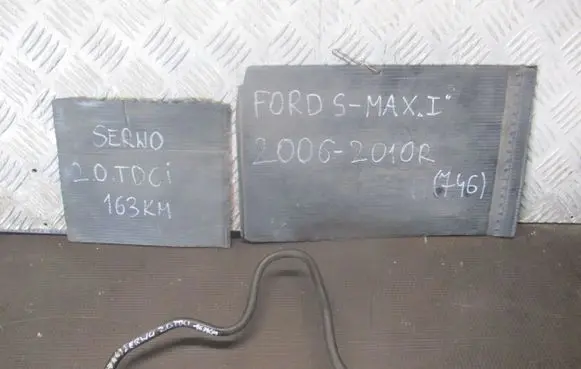 SERWO
2.0.TDCi
163KM
FORD S-MAX „I"
2006-2010R
(746)
SERWO 2.0TDCI 163KM